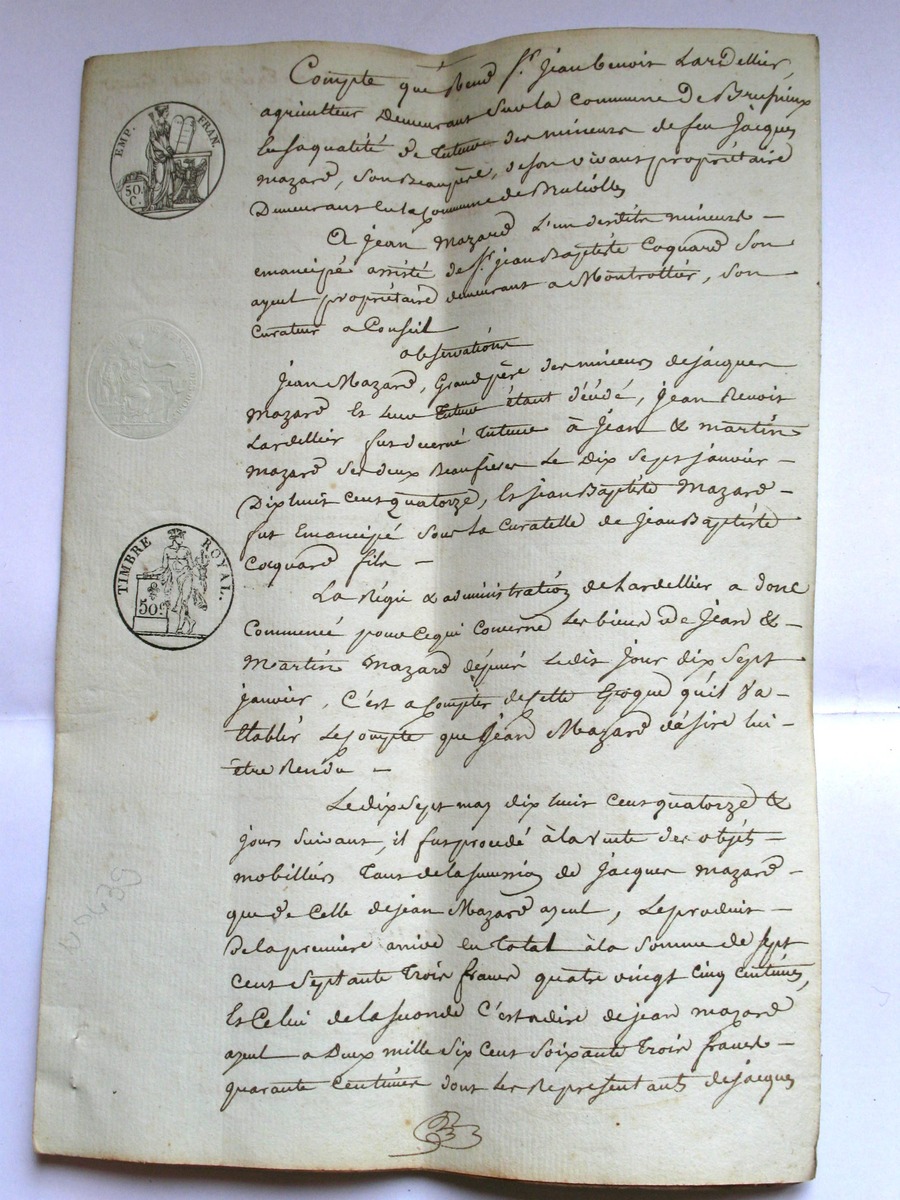 EMP. FRAN.
50. C.
TIMBRE ROYAL.
50 c.
Compte que Rend Sr. jean benoit Lardellier,
agriculteur Demeurant Sur la Commune De Brussieux
En Sa qualité de tuteur des mineurs de feu Jacques
Mazard, Son Beaupère, de Son vivant propriétaire
Demeurant En la Commune de Brullioles
A jean Mazard L'un desdits mineurs –
emancipé assisté de Sr. jean Baptiste Coquard Son
ayeul propriétaire demeurant a Montrottier, Son
Curateur a Conseil
observations
Jean Mazard, Grand père des mineurs de jacques
Mazard Et leur tuteur étant décédé, jean Benoit
Lardellier fut decerné tuteur à Jean & martin
Mazard Ses deux Beaufreres Le Dix Sept janvier –
Dix huit Cent quatorze, Et jean Baptiste Mazard –
fut Emancipé Sous la Curatelle de jean Baptiste
Coquard fils –
La Régie & administration de Lardellier a donc
Commencé pour ce qui Concerne Les biens de Jean & –
Martin Mazard depuis Ledit Jour dix Sept
janvier, C'est a Compter de Cette Epoque qu'il va –
Etablir Le Compte que Jean Mazard désire lui –
être Rendu –
Le dix Sept may dix huit Cent quatorze &
jours Suivants, il fut procédé à la vente des objets –
mobilliers tant de la Succession de jacques mazard –
que de Celle de jean Mazard ayeul, Le produit –
De la première arrive En total à la Somme de Sept
Cent Septante trois francs quatre vingt Cinq Centimes,
Et Celui de la Seconde C'est a dire de jean mazard
ayeul a Deux mille Six Cent Soixante trois francs –
quarante Centimes dont les Représentants de jacques